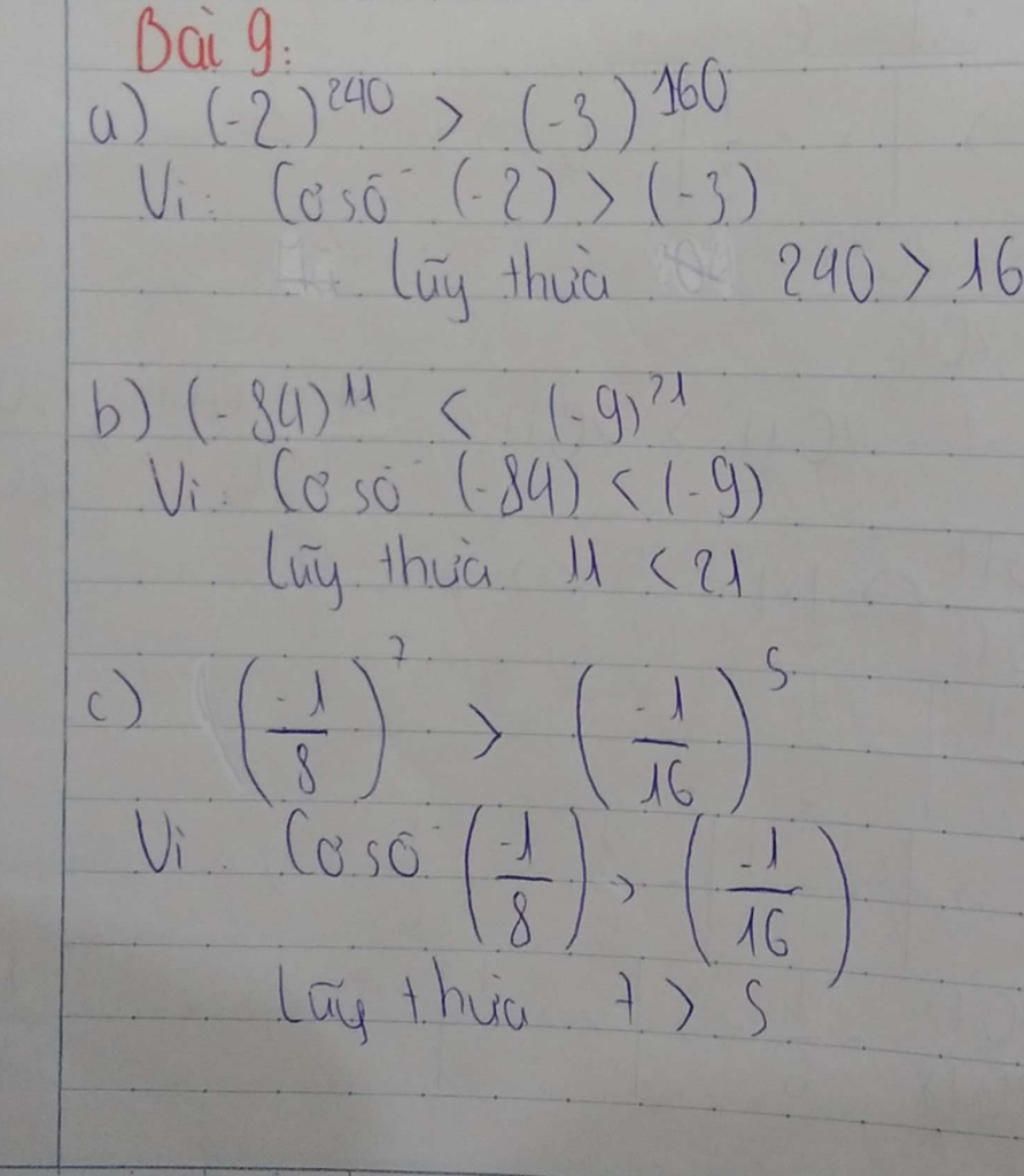 Bài 9:
a) (-2)^240 > (-3)^160
Vì: Cơ số (-2) > (-3)
Lũy thừa 240 > 16
b) (-84)^11 < (-9)^21
Vì: Cơ số (-84) < (-9)
Lũy thừa 11 < 21
c) (-1/8)^7 > (-1/16)^5
Vì Cơ số (-1/8) > (-1/16)
Lũy thừa 7 > 5